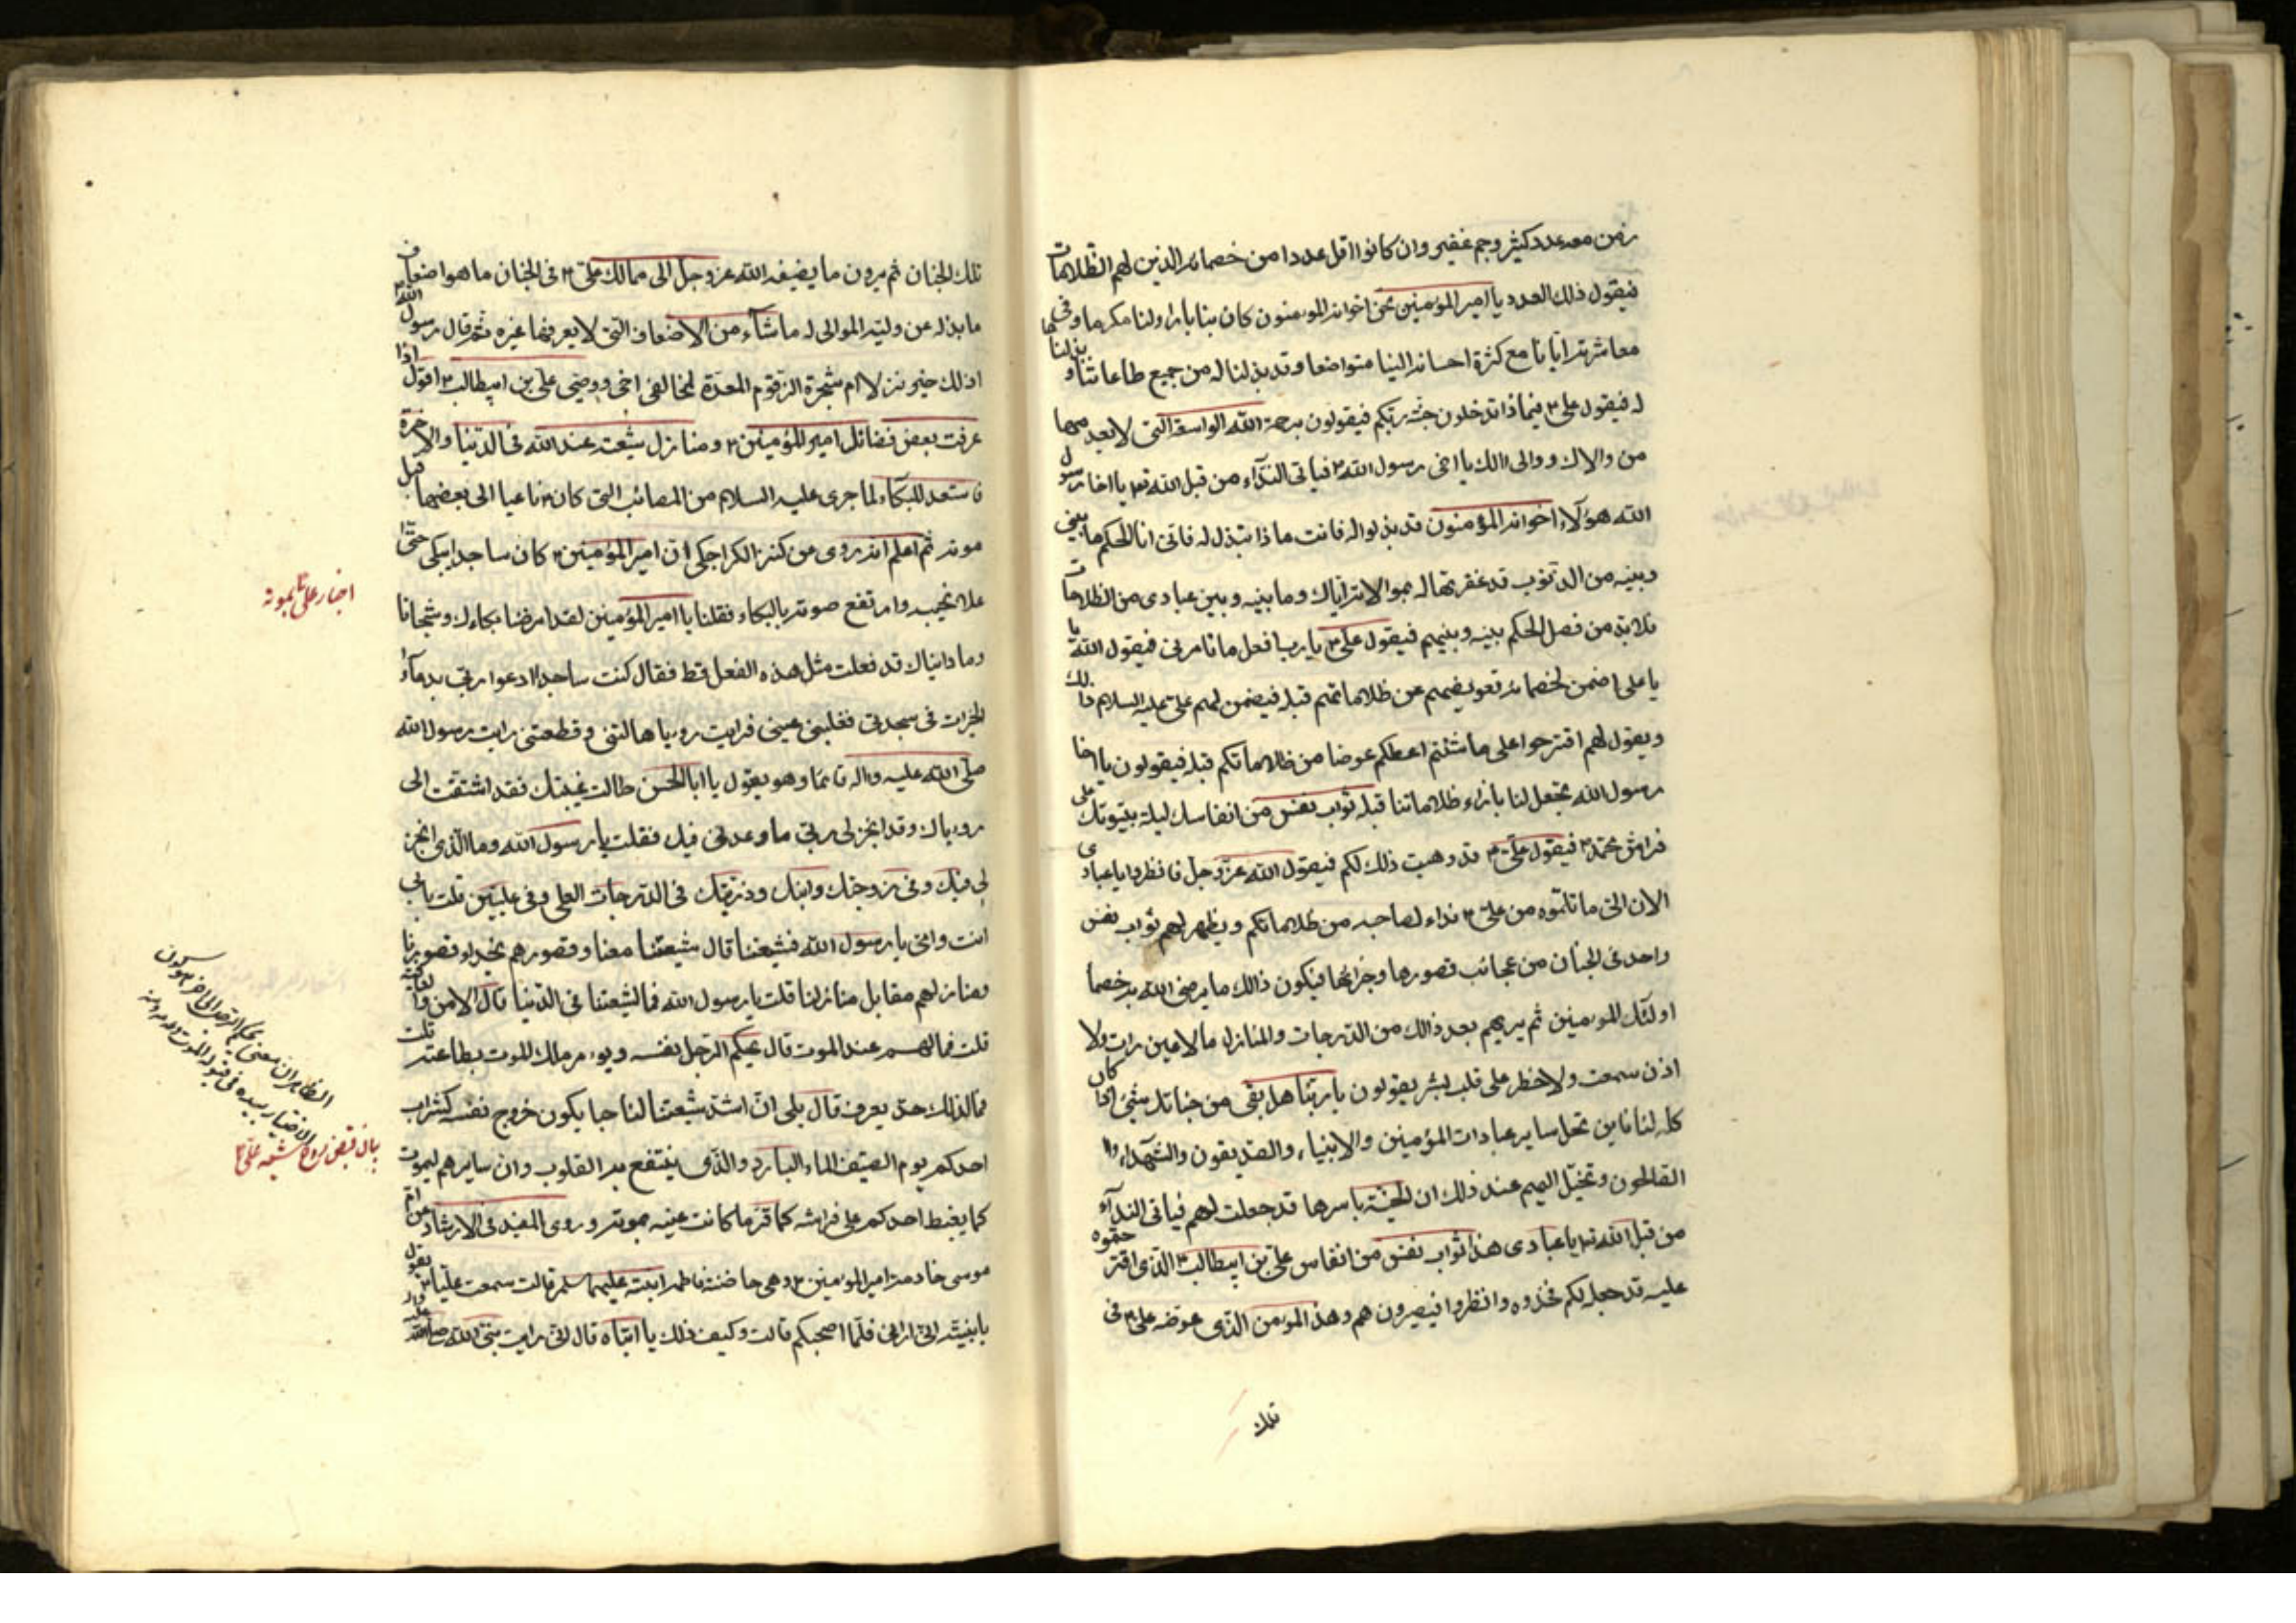 زمن معه عدد كثير وجم غفير وان كانوا اقل عددا من خصمائه الذين لهم الظلامات
فيقول ذلك العدد يا امير المؤمنين نحن اخوانه المؤمنون كان بنا بارا ولنا مكرما وفى
معاشرته ايانا مع كثرة احسانه الينا متواضعا وقد بذلنا له من جميع طاعاتنا وبذلناها
له فيقول على ع فبماذا تدخلون جنة ربكم فيقولون برحمة الله الواسعة التى لا يعدمها
من والاك ووالى الك يا اخى رسول الله ص فياتى النداء من قبل الله تع يا اخا رسول
الله هؤلاء اخوانه المؤمنون قد بذلوا له فانت ماذا تبذل له فانى انا الحكم ما بينى
وبينه من الذنوب قد غفرتها له بموالاته اياك وما بينه وبين عبادى من الظلامات
فلا بد من فصل الحكم بينه وبينهم فيقول على ع يا رب افعل ما تامرنى فيقول الله يا
يا على اضمن لخصمائه تعويضهم عن ظلاماتهم قبله فيضمن لهم على عليه السلام ذلك
ويقول لهم اقترحوا على ما شئتم اعطكم عوضا من ظلاماتكم قبله فيقولون يا اخا
رسول الله تجعل لنا بازاء ظلاماتنا قبله ثواب نفس من انفاسك ليلة بيتوتك على
فراش محمد ص فيقول على ع قد وهبت ذلك لكم فيقول الله عز وجل فانظروا يا عبادى
الان الى ما نلتموه من على ع فداء لصاحبه من ظلاماتكم ويظهر لهم ثواب نفس
واحد فى الجنان من عجائب قصورها وخيراتها فيكون ذلك ما يرضى الله به خصماء
اولئك المؤمنين ثم يريهم بعد ذلك من الدرجات والمنازل ما لا عين رات ولا
اذن سمعت ولا خطر على قلب بشر يقولون يا ربنا هل بقى من جناتك شئ اذا كان
كله لنا فاين تحل ساير عبادك المؤمنين والانبياء والصديقون والشهداء وا
الصالحون وتخيل اليهم عند ذلك ان الجنة باسرها قد جعلت لهم فياتى النداء
من قبل الله تع يا عبادى هذا ثواب نفس من انفاس على بن ابيطالب ع الذى اقترحتموه
عليه قد جعله لكم فخذوه وانظروا فيصيرون هم وهذا المؤمن الذى عوضه على ع فى
تلك
تلك الجنان ثم يرون ما يضيفه الله عز وجل الى ممالك على ع فى الجنان ما هو اضعاف
ما بذله عن وليه الموالى له ما شاء من الاضعاف التى لا يعرفها غيره ثم قال رسول الله ص
اذلك خير نزلا ام شجرة الزقوم المعدة لمخالفى اخى ووصيى على بن ابيطالب ع اقول اذا
عرفت بعض فضائل امير المؤمنين ع ومنازل شيعته عند الله فى الدنيا والاخرة
فاستعد للبكاء لما جرى عليه السلام من المصائب التى كان ع ناعيا الى بعضها قبل
موته ثم اعلم انه روى من كنز الكراجكى ان امير المؤمنين ع كان ساجدا يبكى حتى
علا نحيبه وارتفع صوته بالبكاء فقلنا يا امير المؤمنين لقد امرضنا بكاءك وشجانا
وما رايناك قد فعلت مثل هذه الفعل قط فقال كنت ساجدا ادعوا ربى بدعاء
الخيرات فى سجدتى فغلبنى عينى فرايت رويا هالتنى وقطعتنى رايت رسول الله
صلى الله عليه واله قائما وهو يقول يا ابا الحسن طالت غيبتك فقد اشتقت الى
روءياك وقد انجز لى ربى ما وعدنى فيك فقلت يا رسول الله وما الذى انجز
لى فيك وفى زوجتك وابنك وذريتك فى الدرجات العلى وفى عليين قلت بابى
انت وامى يا رسول الله فشيعتنا قال شيعتنا معنا وقصورهم بحذاء قصورنا
ومنازلهم مقابل منازلنا قلت يا رسول الله فما لشيعتنا فى الدنيا قال الامن والعافية
قلت فما لهم عند الموت قال يحكم الرجل نفسه ويوءمر ملك الموت بطاعته قلت
فما لذلك حد يعرف قال بلى ان اشد شيعتنا لنا حبا يكون خروج نفسه كشراب
احدكم يوم الصيف الماء البارد والذى ينتفع به القلوب وان سايرهم ليموت
كما يغبط احدكم على فراشه كما قر ما كانت عينه بموته وروى المفيد فى الارشاد عن ام
موسى خادمة امير المؤمنين ع وهى حاضنة فاطمه ابنته عليهما سلم قالت سمعت عليا ع يقول
يا بنية انى ارانى قلما اصحبكم قالت وكيف ذلك يا ابتاه قال انى رايت نبى الله صلى الله
اخبار على ع بموته
بيان قبض روح شيعه على ع